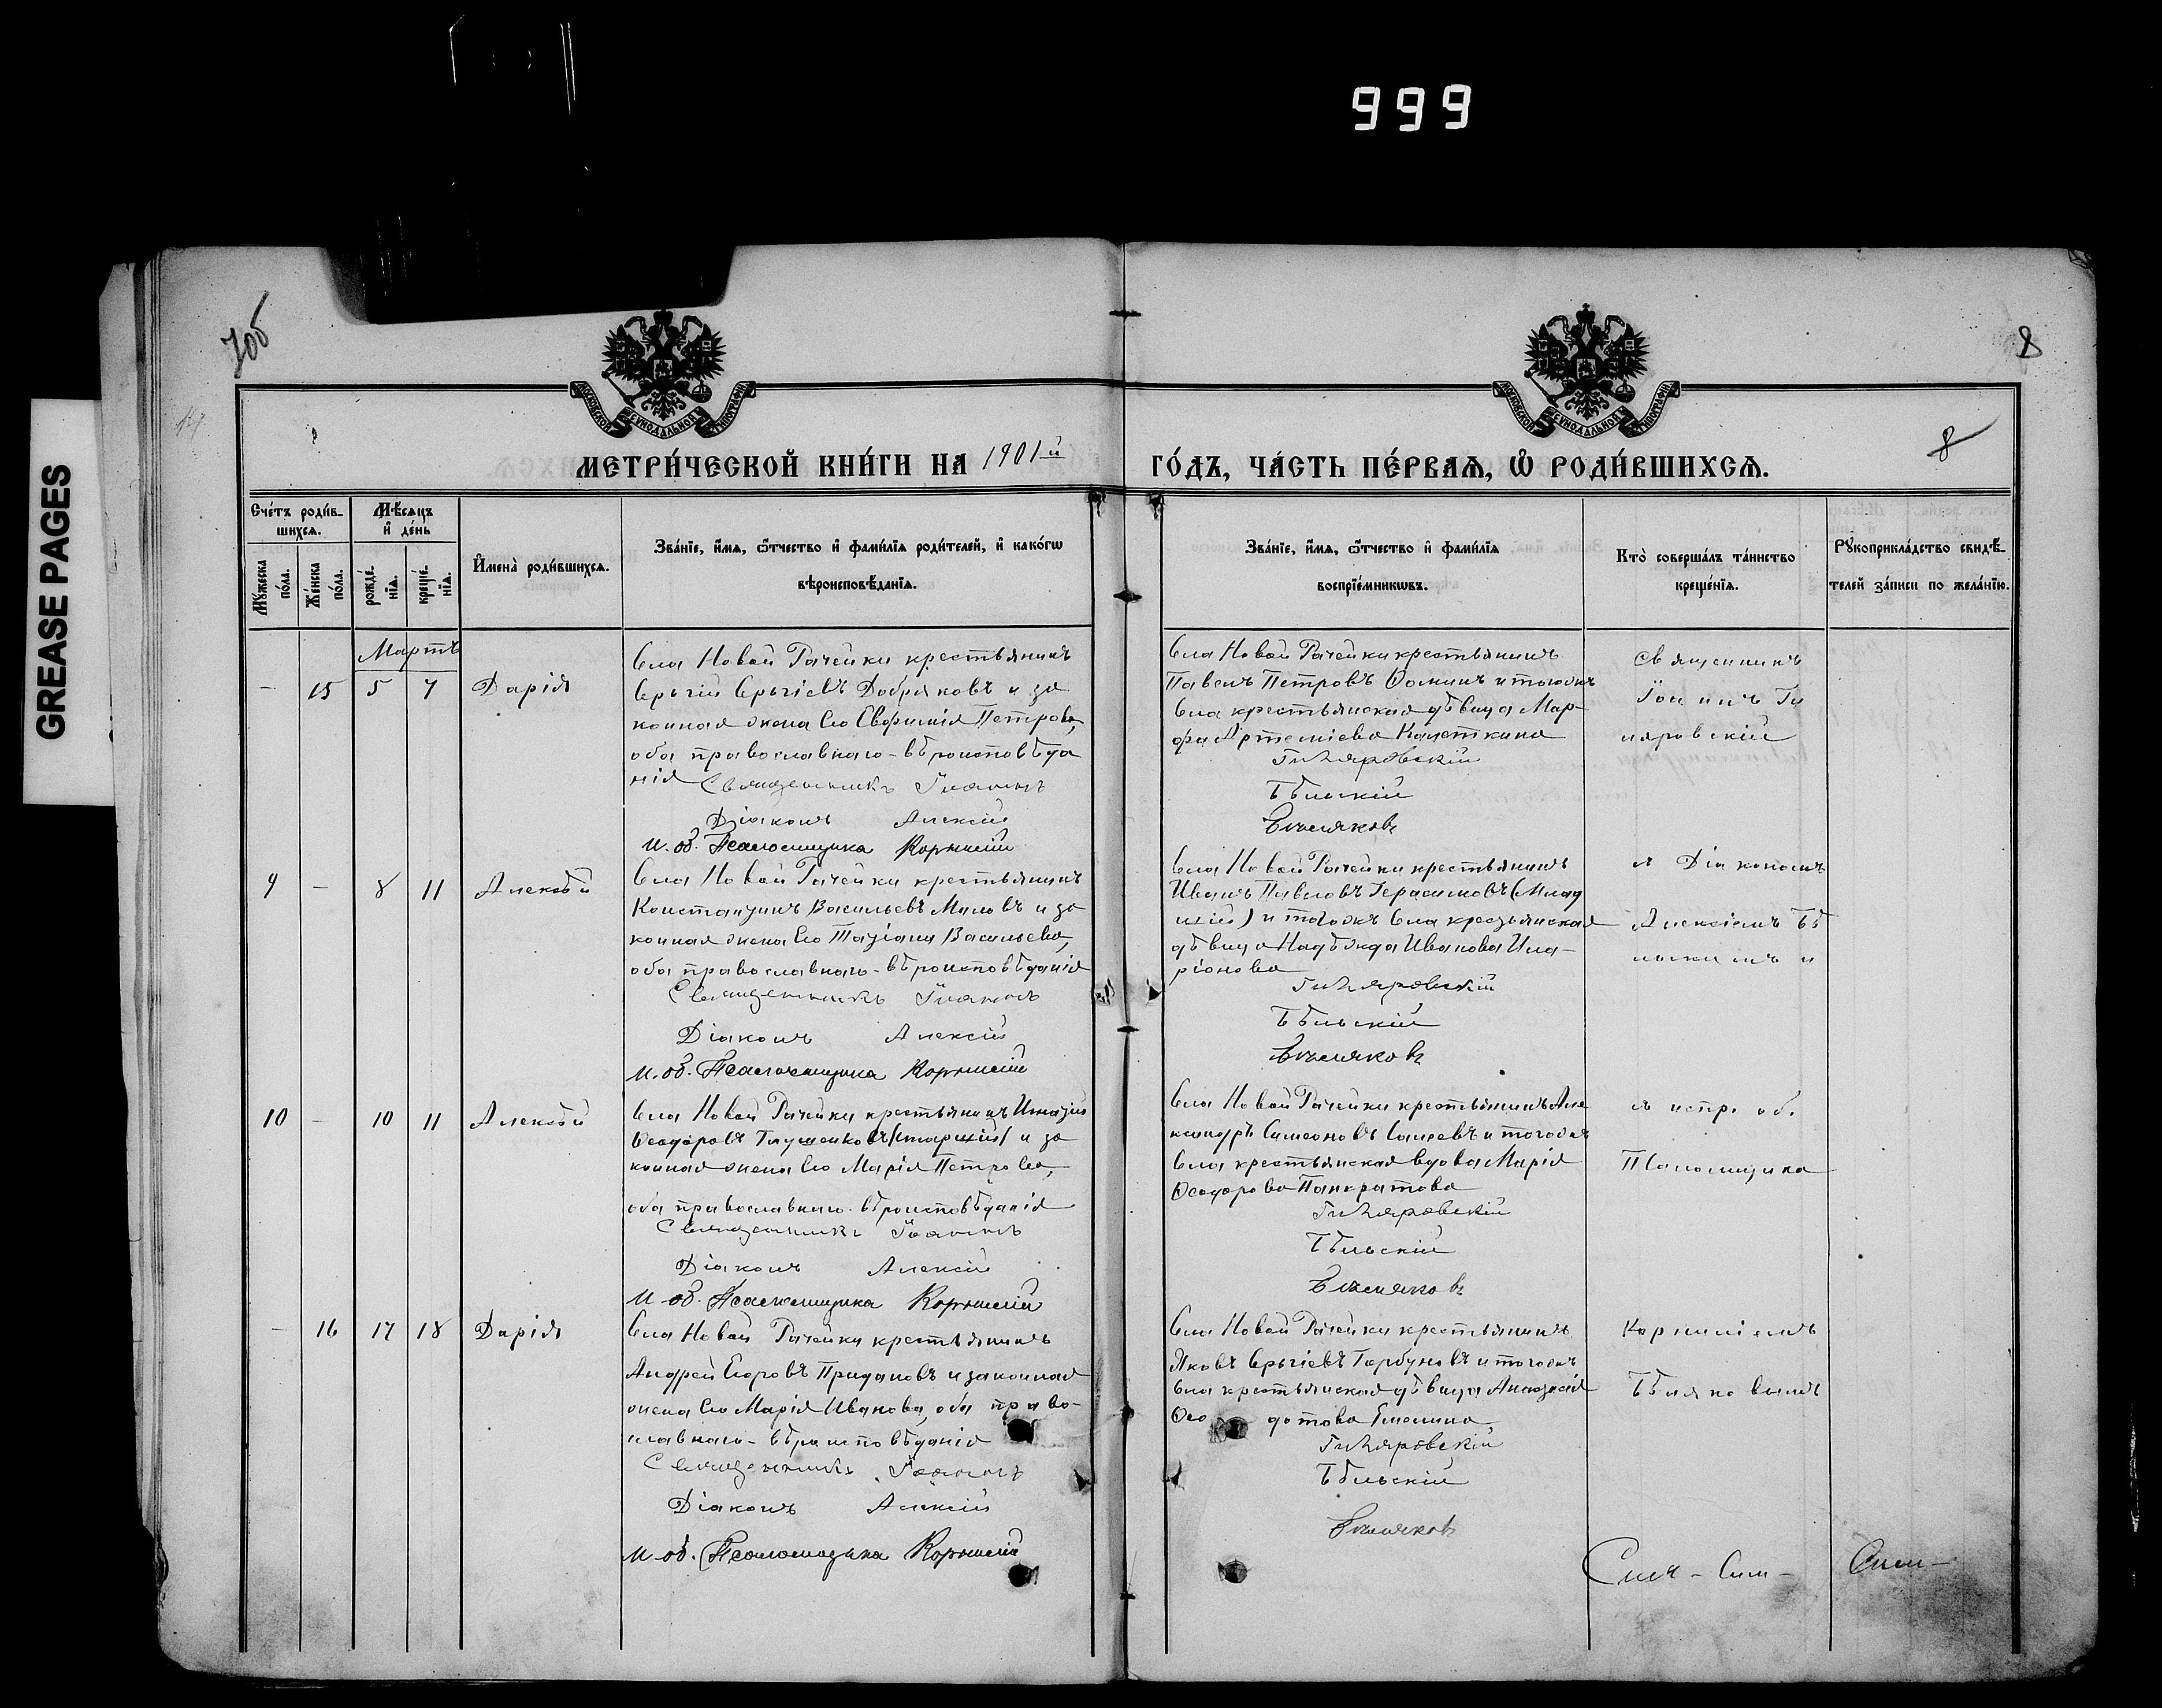 999
GREASE PAGES
7об
8
МОСКОВСКОЙ СѴНОДАЛЬНОЙ ТИПОГРАФІИ
МОСКОВСКОЙ СѴНОДАЛЬНОЙ ТИПОГРАФІИ
8
МЕТРИ́ЧЕСКОЙ КНИ́ГИ НА 1901й
ГО́ДЪ, ЧА́СТЬ ПЕ́РВАѦ, Ѽ РОДИ́ВШИХСѦ.
Счéтъ роди́в-
шихсѧ.
Мꙋ́жеска
по́ла.
Же́нска
по́ла.
Мѣ́сѧцъ
и҆ де́нь
рожде́-
нїѧ.
креще́-
нїѧ.
И҆мена̀ роди́вшихсѧ.
Зва́нїе, и҆́мѧ, ѻ҆́тчество и҆ фами́лїѧ роди́телей, и҆ како́гѡ
вѣроисповѣ́данїѧ.
Зва́нїе, и҆́мѧ, ѻ҆́тчество и҆ фами́лїѧ
воспрїе́мникѡвъ.
Кто̀ соверша́лъ та́инство
креще́нїѧ.
Рꙋкоприкла́дство свидѣ́-
телей за́писи по жела́нїю.
Мартъ
– 15 5 7 Дарія
Села Новой Рачейки крестьянинъ
Сергій Сергіевъ Добряковъ и за
конная жена его Евфимія Петрова,
оба православнаго-вѣроисповѣда
нія
Священникъ Іоаннъ
Діаконъ Алексій
И. об. Псаломщика Корнилій
Села Новой Рачейки крестьянинъ
Павелъ Петровъ Ѳоминъ и тогожъ
села крестьянская дѣвица Мар-
фа Артеміева
Гиляровскій
Бѣльскій
Священникъ
Іоаннъ Ги
ляровскій
9 – 8 11 Алексѣй
Села Новой Рачейки крестьянинъ
Константинъ Васильевъ Миловъ и за
конная жена его Татіана Васильева,
оба православнаго-вѣроисповѣданія
Священникъ Іоаннъ
Діаконъ Алексій
И. об. Псаломщика Корнилій
Села Новой Рачейки крестьянинъ
Иванъ Павловъ Герасимовъ (млад
шій) и тогожъ села крестьянская
дѣвица Надѣжда Иванова Ила-
ріонова
Гиляровскій
Бѣльскій
съ Діакономъ
Алексіемъ Бѣ
льскимъ и
10 – 10 11 Алексѣй
Села Новой Рачейки крестьянинъ Игнатій
Ѳеодоровъ Глушенковъ (старшій) и за
конная жена его Марія Петрова,
оба православнаго-вѣроисповѣданія
Священникъ Іоаннъ
Діаконъ Алексій
И. об. Псаломщика Корнилій
Села Новой Рачейки крестьянинъ Але
ксандръ Симеоновъ и тогожъ
села крестьянская вдова Марія
Ѳеодорова Панкратова
Гиляровскій
Бѣльскій
съ испр. об.
Псаломщика
– 16 17 18 Дарія
Села Новой Рачейки крестьянинъ
Андрей Егоровъ Придановъ и законная
жена его Марія Иванова, оба право-
славнаго-вѣроисповѣданія
Священникъ Іоаннъ
Діаконъ Алексій
И. об. Псаломщика Корнилій
Села Новой Рачейки крестьянинъ
Яковъ Сергіевъ Горбуновъ и тогожъ
села крестьянская дѣвица Анастасія
Ѳео дотова Емелина
Гиляровскій
Бѣльскій
Корниліемъ
Бѣляковымъ